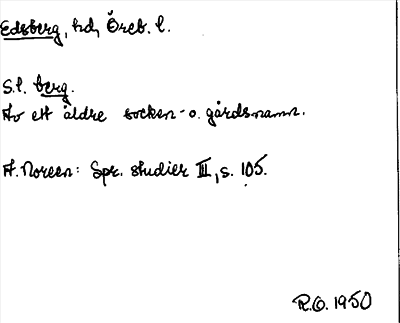 Edsberg, hd, Öreb. l.
S.l. berg.
Av ett äldre socken- o. gårdsnamn.
A. Noreen: Spr. studier III, s. 105.
R.O. 1950